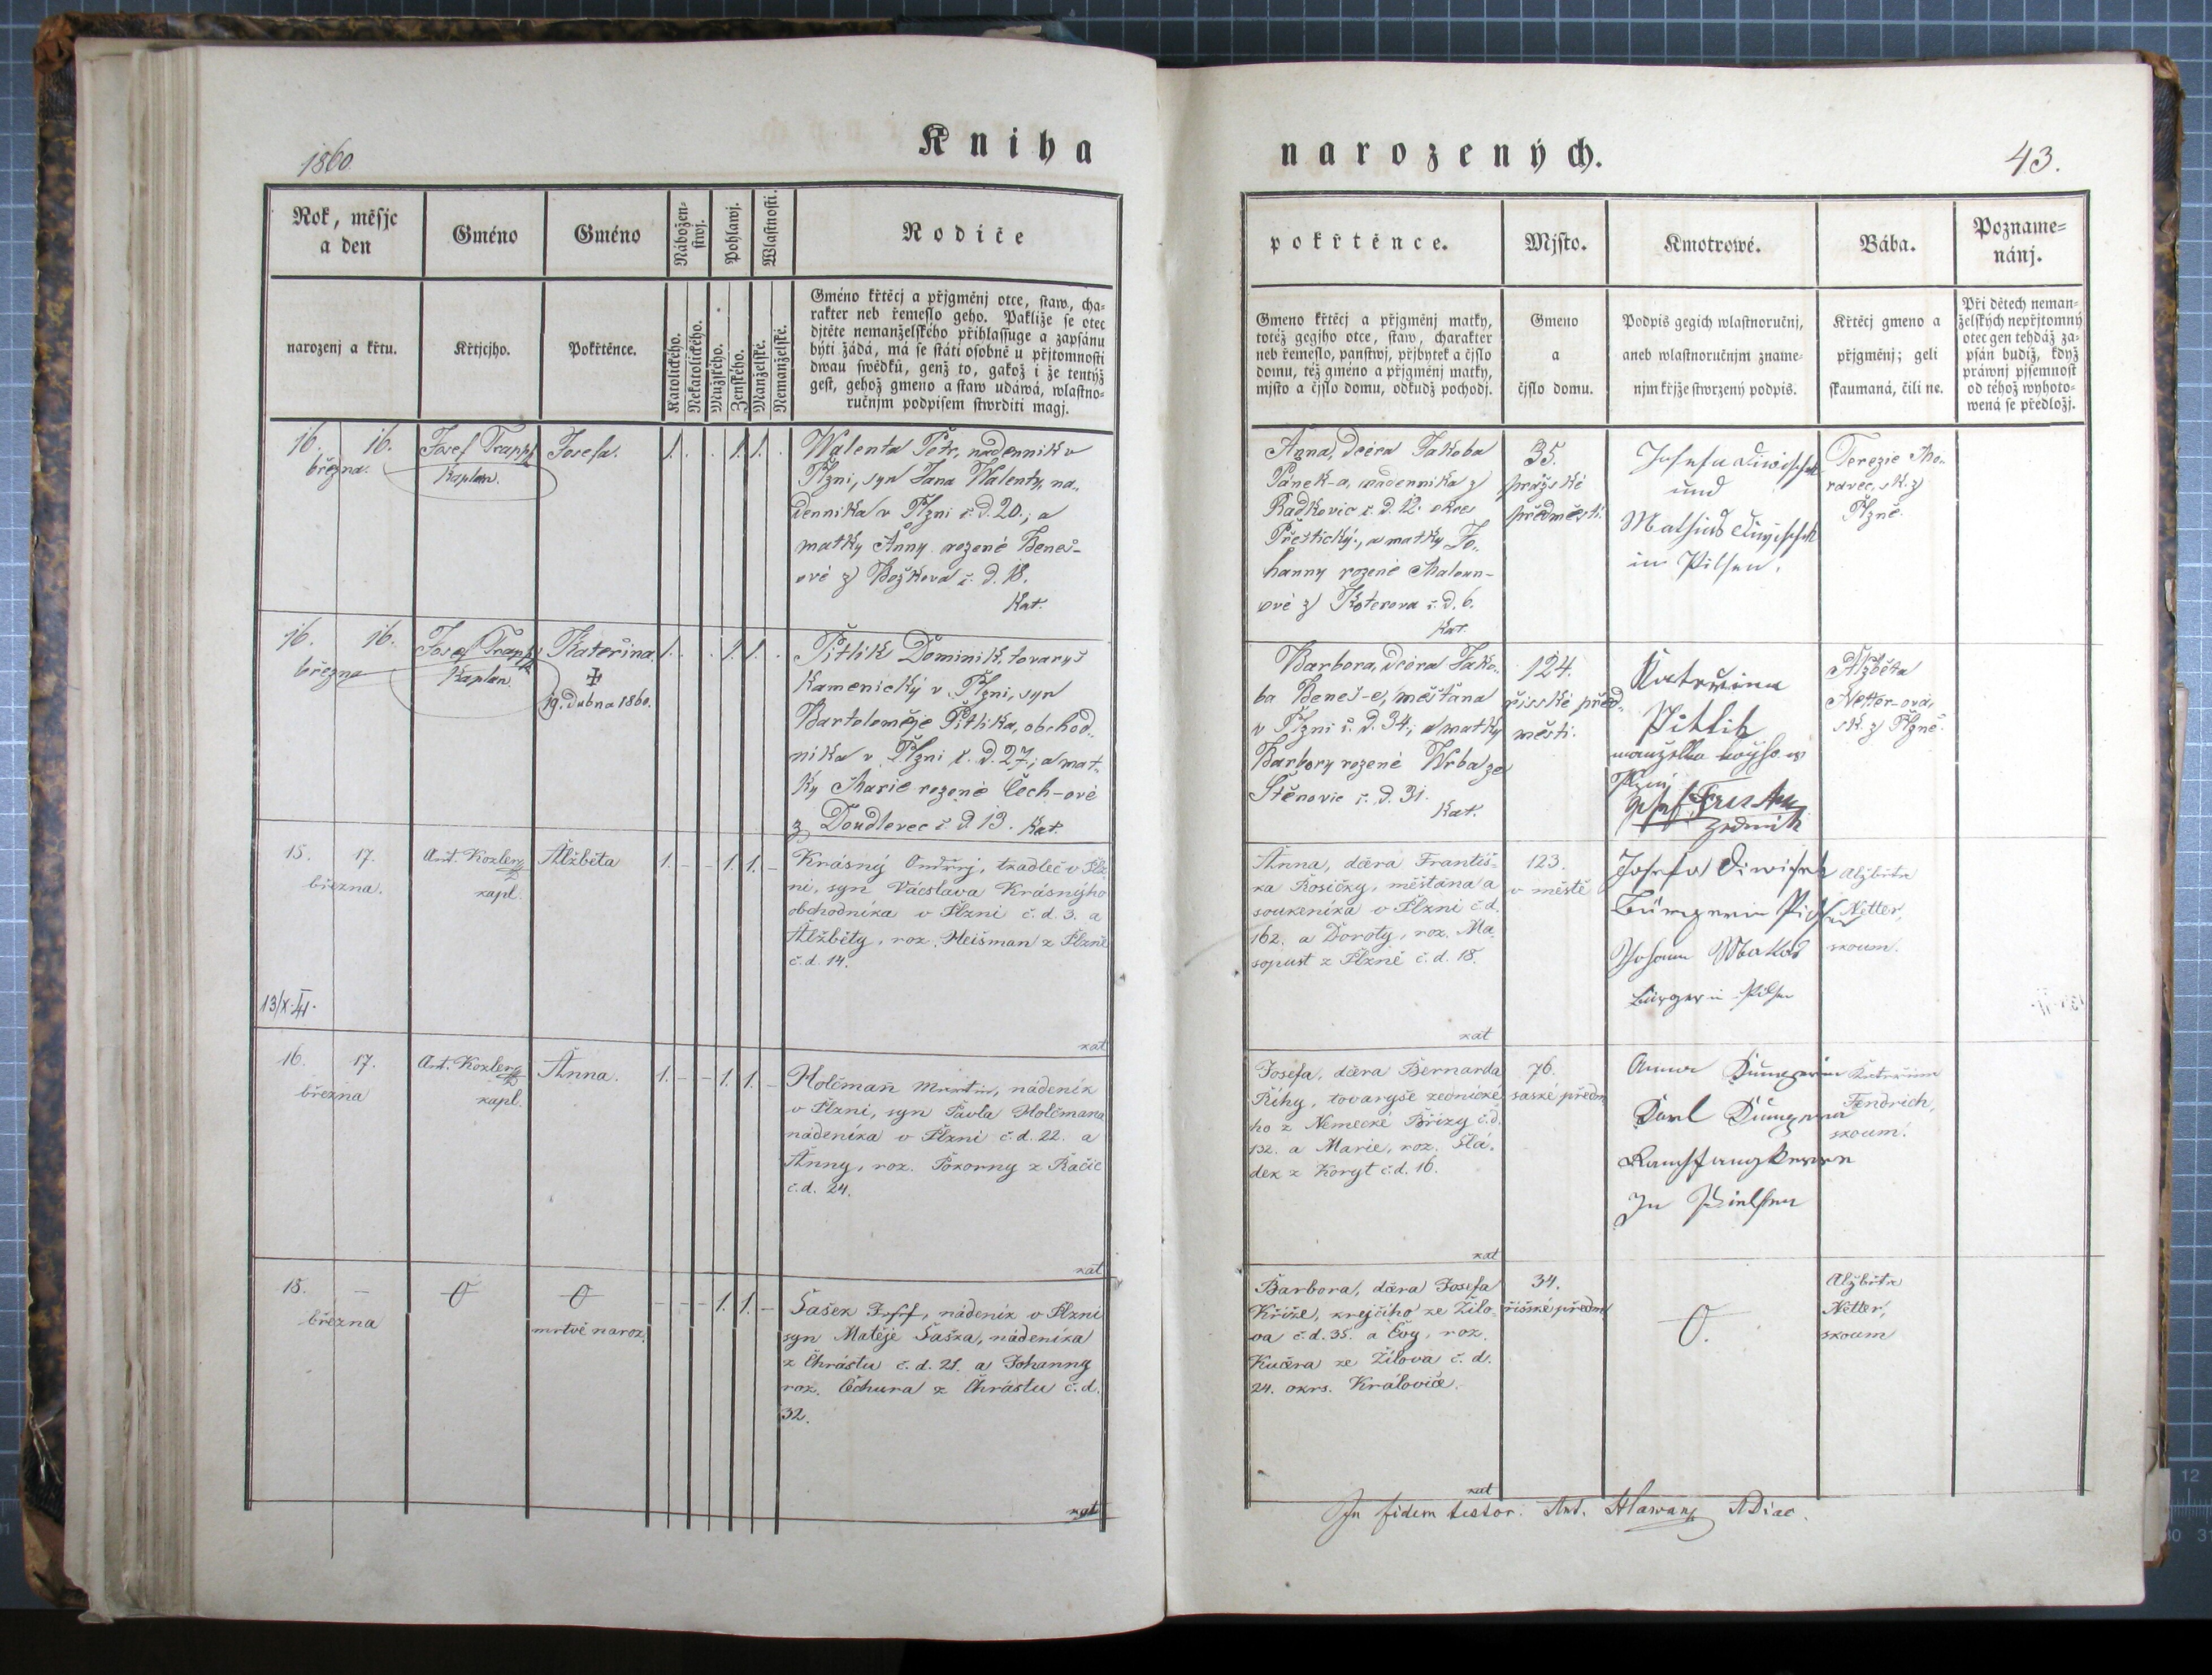 1860.
Kniha
Rok, měsjc
a den
Gméno
Gméno
Nábožen-
stwj.
Pohlawj.
Wlastnosti.
Rodiče
narozenj a křtu.
Křtjcjho.
Pokřtěnce.
Katolického.
Nekatolického.
Mužského.
Ženského.
Manželské.
Nemanželské.
Gméno křtěcj a přjgměnj otce, staw, cha-
rakter neb řemeslo geho. Pakliže se otec
djtěte nemanželského přihlassuge a zapsánu
býti žádá, má se státi osobně u přjtomnosti
dwau swědků, genž to, gakož i že tentýž
gest, gehož gmeno a staw udáwá, wlastno-
ručnjm podpisem stwrditi magj.
16. 16.
března.
Josef Trappl
Kaplan.
Josefa.
1. . . 1. 1. .
Walenta Petr, nádenník v
Plzni, syn Jana Walenty, ná-
denníka v Plzni č. d. 20., a
matky Anny rozené Beneš-
ové z Božkova č. d. 18.
Kat.
16. 16.
března
Josef Trappl
Kaplan.
Kateřina
19. dubna 1860.
1. . . 1. 1. .
Pitlik Dominik, tovaryš
Kamenický v Plzni, syn
Bartoloměje Pitlika, obchod-
níka v Plzni č. d. 27; a mat-
ky Marie rozené Čech-ové
z Doudlevec č. d. 13. Kat.
15. 17.
března.
13/X.41.
Ant. Kozler
kapl.
Alžběta
1. - - 1. 1. -
Krásný Ondřej, tkadlec v Plz-
ni, syn Václava Krásnýho
obchodníka v Plzni č. d. 3. a
Alžběty, roz. Heišman z Plzně
č. d. 14.
kat
16. 17.
března
Ant. Kozler
kapl.
Anna.
1. - - 1. 1. -
Holčman Martin, nádeník
v Plzni, syn Pavla Holčmana
nádeníka v Plzni č. d. 22. a
Anny, roz. Pokorny z Račic
č. d. 24.
kat
18. -
března
0
0
mrtvě naroz.
- - - 1. 1. -
Šašek Josef, nádeník v Plzni
syn Matěje Šaška, nádeníka
z Chrástu č. d. 21. a Johanny
roz. Čchura z Chrástu č. d.
32.
kat
narozených.
43.
pokřtěnce.
Mjsto.
Kmotrowé.
Bába.
Pozname-
nánj.
Gmeno křtěcj a přjgměnj matky,
totéž gegjho otce, staw, charakter
neb řemeslo, panstwj, přjbytek a čjslo
domu, též gméno a přjgměnj matky,
mjsto a čjslo domu, odkudž pochodj.
Gmeno
a
čjslo domu.
Podpis gegich wlastnoručnj,
aneb wlastnoručnjm zname-
njm křjže stwrzený podpis.
Křtěcj gmeno a
přjgměnj; geli
skaumaná, čili ne.
Při dětech neman-
želských nepřjtomný
otec gen tehdáž za-
psán budiž, když
práwnj pjsemnost
od téhož wyhoto-
wená se předložj.
Anna, dcera Jakoba
Pánek-a, nádenníka z
Radkovic č. d. 12. okres
Přeštický, a matky Jo-
hanny rozené Maloun-
ové z Koterova č. d. 6.
Kat.
35.
pražské
předměstí.
Josefa Diwischek
und
Mathias Diwischek
in Pilsen.
Terezie Mo-
ravec, sk. z
Plzně.
Barbora, dcera Jako-
ba Beneš-e, měšťana
v Plzni č. d. 34; a matky
Barbory rozené Wrba ze
Štěnovic č. d. 31.
Kat.
124.
řisské před-
městí.
Kateřina
Pitlik
manželka
Plzni
zedník
Alžběta
Netter-ová,
sk. z Plzně.
Anna, dcera Františ-
ka Kosičky, měšťana a
soukeníka v Plzni č. d.
162. a Doroty, roz. Ma-
sopust z Plzně č. d. 18.
kat
123.
v městě
Josefa Diwischek
Bürgerin Pilsen
Johann Makas
Bürger in Pilsen
Alžběta
Netter,
skoum.
Josefa, dcera Bernarda
Říhy, tovaryše zednické-
ho z Německé Břízy č. d.
132. a Marie, roz. Slá-
dek z Koryt č. d. 16.
kat
76.
saské předm.
Anna
Karl
In Pielsen
Kateřina
Fendrich,
skoum.
Barbora, dcera Josefa
Kříže, krejčího ze Žilo-
va č. d. 35. a Evy, roz.
Kučera ze Žilova č. d.
24. okrs. Kralovice.
kat
34.
říšské předm.
0.
Alžběta
Netter,
skoum
In fidem testor. Ant. Hlawan ADiac.